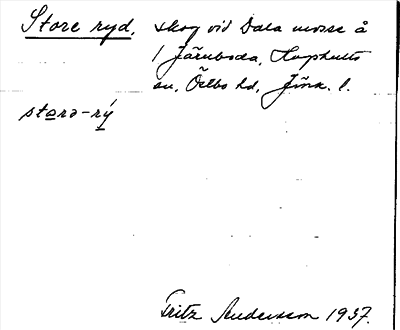 Store ryd, skog vid Dala mosse å
/ Järnboda, Hvphults
sn, Östbo hd, Jönk. l.
storə-rý
Fritz Andersson 1937.